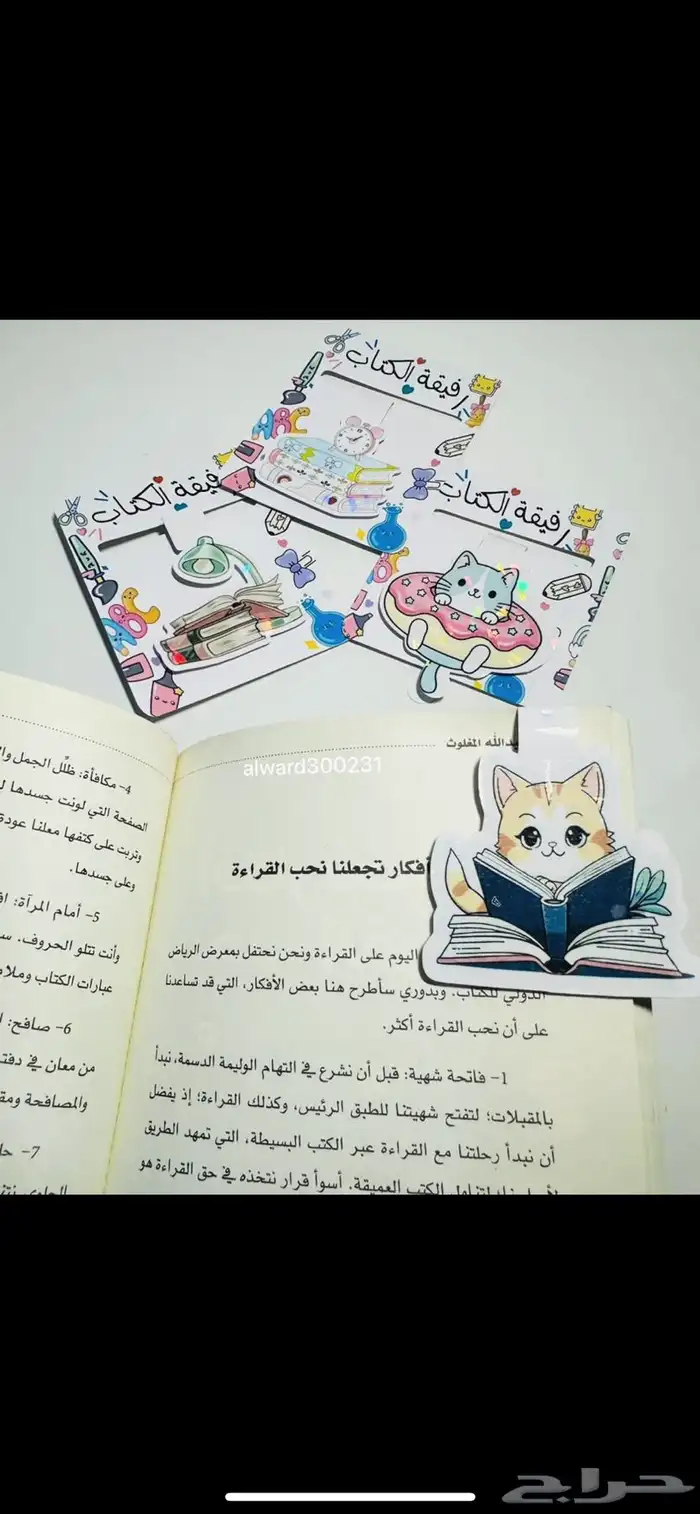 رفيقة الكتاب
رفيقة الكتاب
ABC
فيقة الكتاب
عبدالله المغلوث
alward300231
أفكار تجعلنا نحب القراءة
اليوم على القراءة ونحن نحتفل بمعرض الرياض
الدولي للكتاب. وبدوري سأطرح هنا بعض الأفكار، التي قد تساعدنا
على أن نحب القراءة أكثر.
1- فاتحة شهية: قبل أن نشرع في التهام الوليمة الدسمة، نبدأ
بالمقبلات؛ لتفتح شهيتنا للطبق الرئيس، وكذلك القراءة؛ إذ يفضل
أن نبدأ رحلتنا مع القراءة عبر الكتب البسيطة، التي تمهد الطريق
لتناول الكتب العميقة. أسوأ قرار نتخذه في حق القراءة هو
4- مكافأة: ظلِّل الجمل وال
الصفحة التي لونت جسدها ل
وتربت على كتفها معلنا عودة
وعلى جسدها.
5- أمام المرآة: اق
وأنت تتلو الحروف. س
عبارات الكتاب وملام
6- صافح: ا
من معان في دفت
والمصافحة ومق
7- حا
حراج